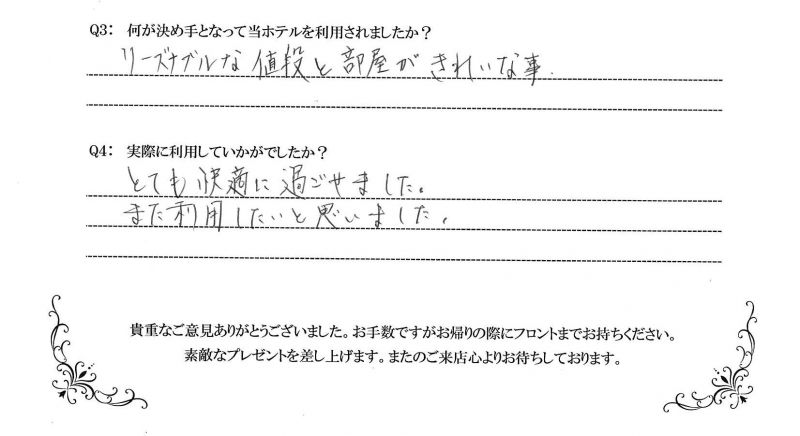 Q3: 何が決め手となって当ホテルを利用されましたか?
リーズナブルな値段と部屋がきれいな事.
Q4: 実際に利用していかがでしたか?
とても快適に過ごせました。
また利用したいと思いました。
貴重なご意見ありがとうございました。お手数ですがお帰りの際にフロントまでお持ちください。
素敵なプレゼントを差し上げます。またのご来店心よりお待ちしております。